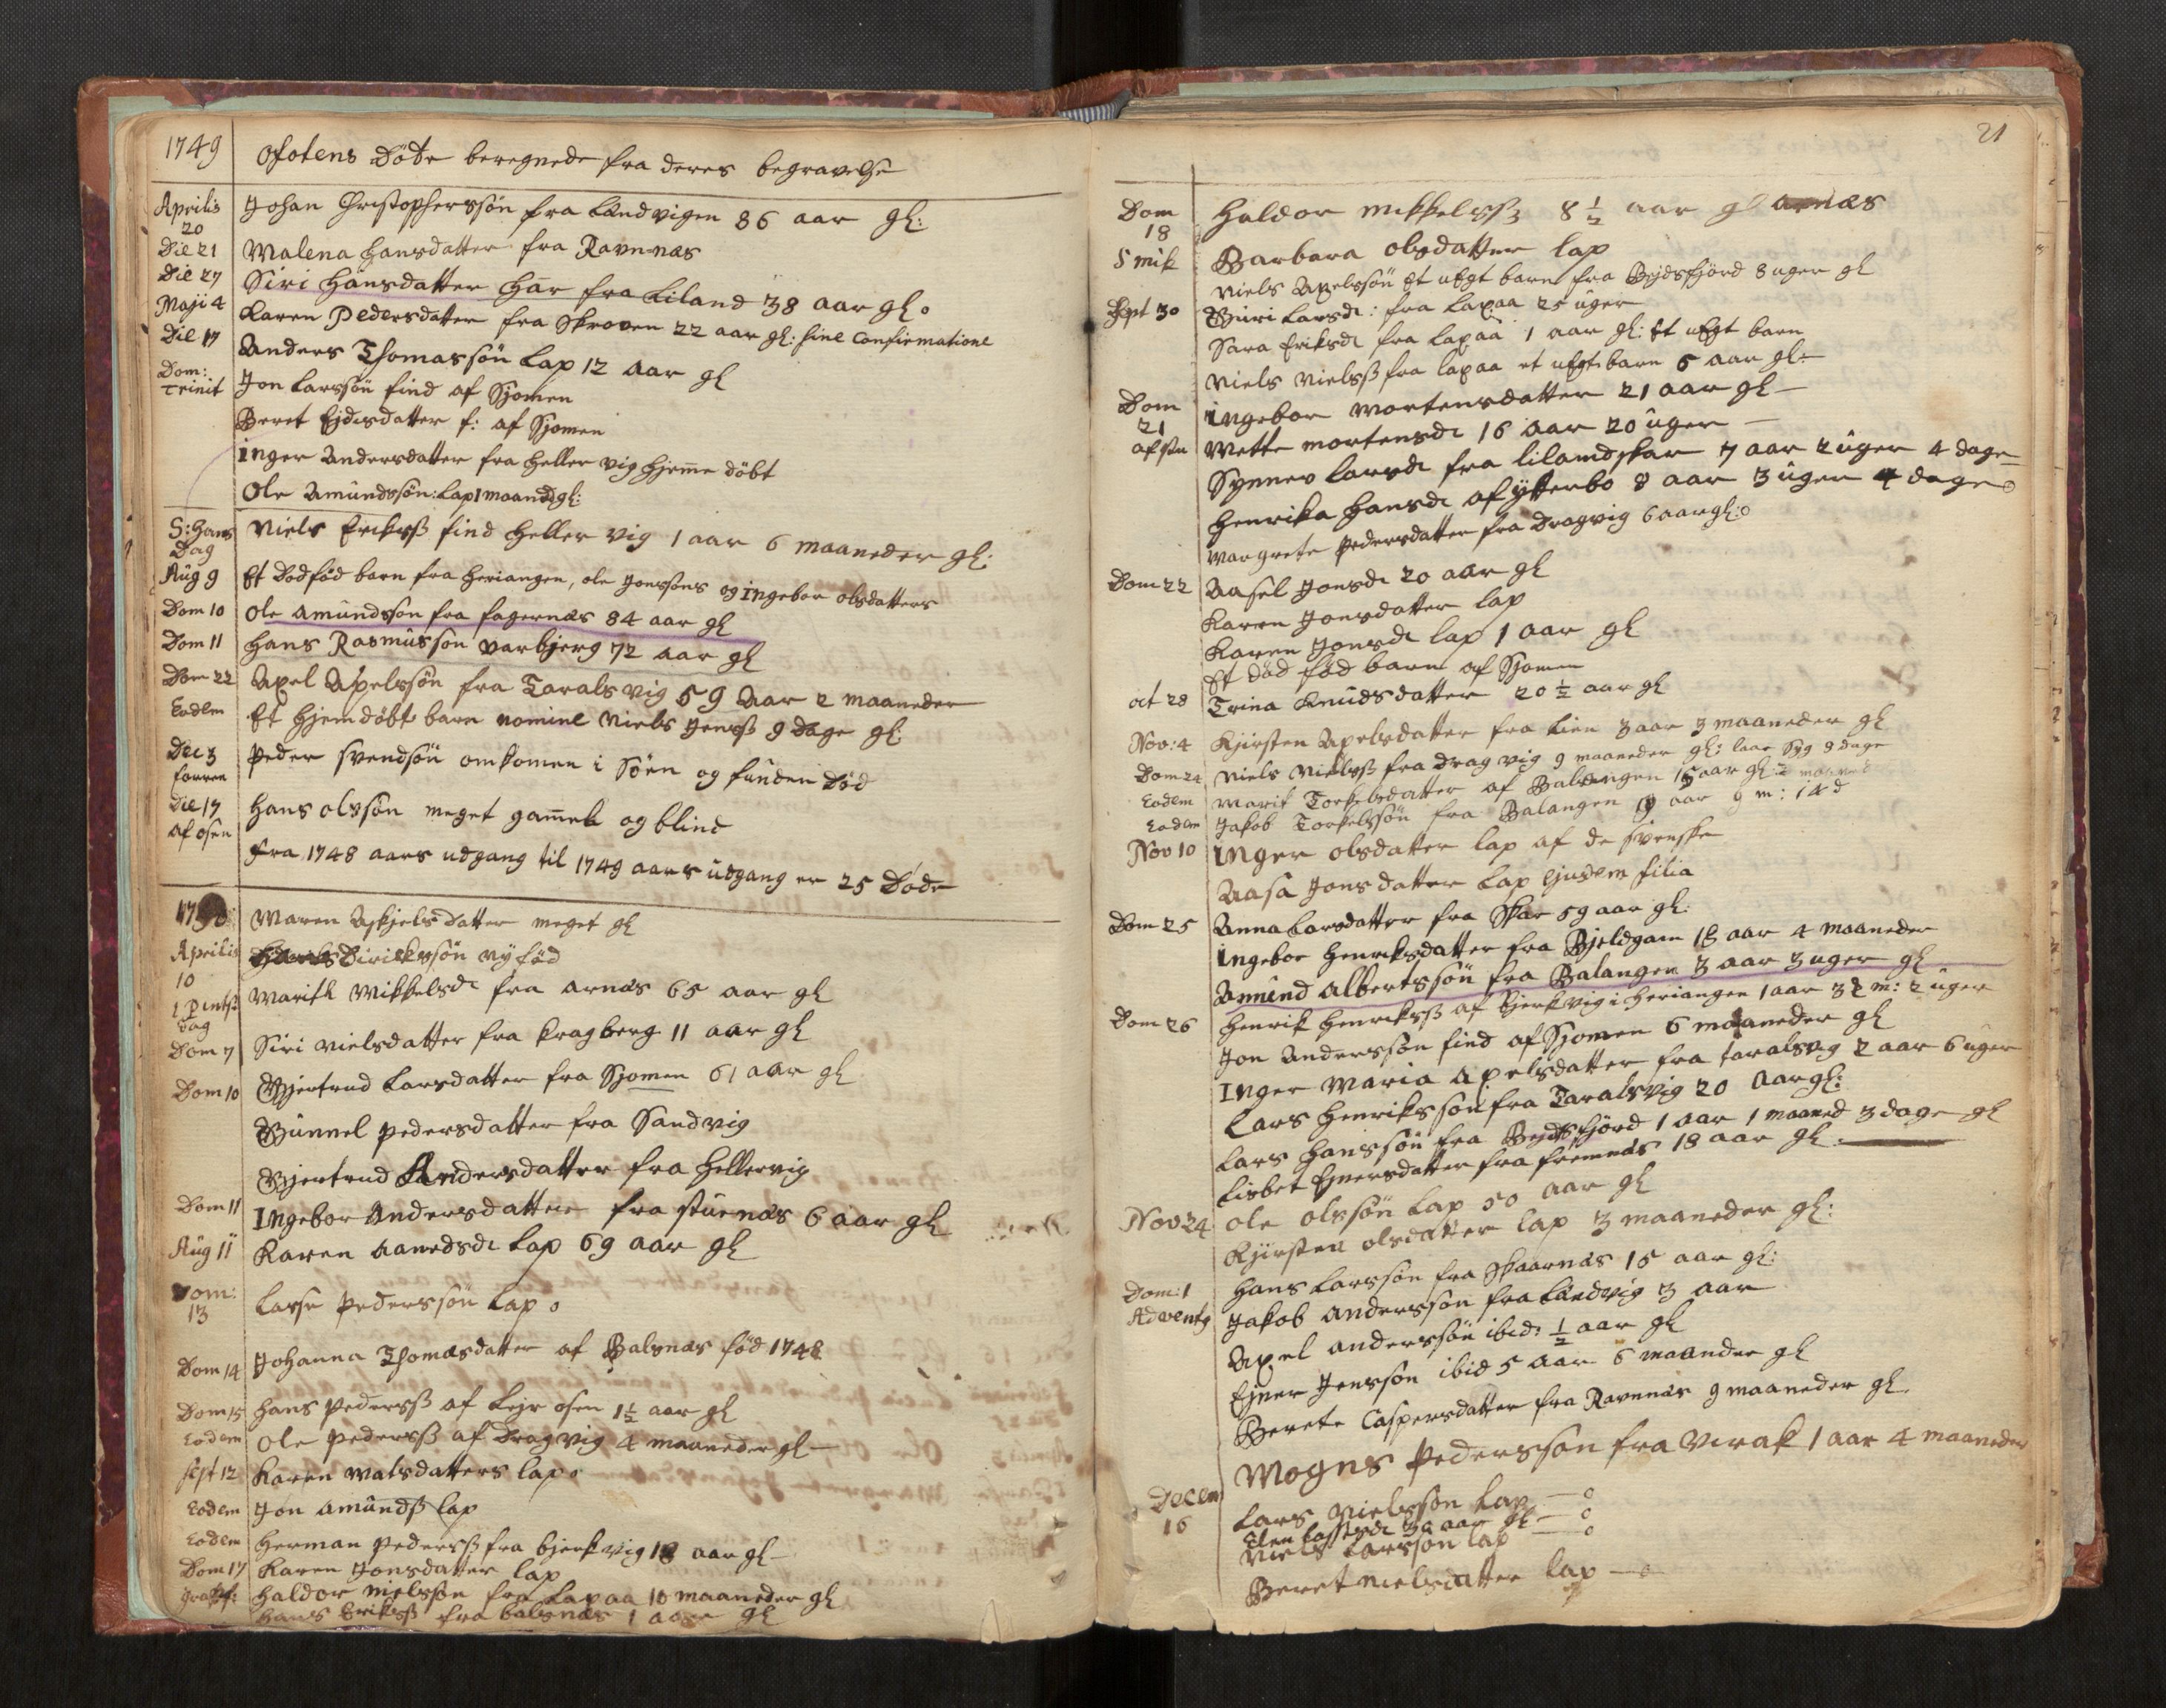 1749 Ofotens Döde beregnede fra deres begravelse
Aprilis 20 Johan Christophersön fra Landvigen 86 aar gl:
Die 21 Malena hansdatter fra Ravnnæs
Die 27 Siri hansdatter har fra Liland 38 aar gl.
Maji 4 Karen Pedersdatter fra Skroven 22 aar gl: sine Confirmatione
Die 17 Anders Thomassön Lap 12 aar gl
Dom: Trinit Jon Larssön find af Sjomen
Beret Ejdisdatter f: af Sjomen
Inger Andersdatter fra Hellervig hjemme döbt
Ole Amundssön: Lap 1 maaned gl:
S: Hans Dag Niels Erikss find Hellervig 1 aar 6 maaneder gl:
Aug 9 Et Dødfød barn fra Heriangen, ole Jonssöns og Ingebor olsdatters
Dom 10 Ole Amundsson fra fagernæs 84 aar gl
Dom 11 Hans Rasmusson Varbjerg 72 aar gl
Dom 22 Axel Axelssön fra Taralsvig 59 Aar 2 maaneder
Eodem Et hjemdöbt barn nomine Niels Jenss 9 Dage gl:
Dec 3 Peder Svendsön omkomen i Söen og funden Död
Die 17 af osen Hans olssön meget gammel og blind
Fra 1748 aars udgang til 1749 aars udgang er 25 Døde
1750: Maren Askjelsdatter meget gl
Aprilis 10 Dirikssön nyfød
1 Pints dag Marith Mikkelsd: fra Arnæs 65 aar gl
Dom 7 Siri Nielsdatter fra Kragberg 11 aar gl
Dom 10 Gjertrud Larsdatter fra Sjomen 61 aar gl
Gunnel Pedersdatter fra Sandvig
Gjertrud Andersdatter fra Hellervig
Dom 11 Ingebor Andersdatter fra stuenæs 6 aar gl
Aug 11 Karen Aanedsd: Lap 69 aar gl
Dom: 13 Lasse Pederssön Lap
Dom 14 Johanna Thomasdatter af Balsnæs född 1748
Dom 15 Hans Pederss af Lejrosen 1½ aar gl
Eodem Ole Pederss af Dragvig 4 maaneder gl
Sept 12 Karen Matsdatters lap
Eodem Jon Amunds lap
Eodem Herman Pederss fra bjerkvig 18 aar gl
Dom 17 Karen Jonsdatter lap
Haldor Nielssön fra Lapaa 10 maaneder gl
Hans Erikss fra balsnæs 1 aar gl
21
Dom 18 Haldor Mikkelss 8½ aar gl arnæs
S mik Barbara olsdatter lap
Niels Axelssön Et uægt barn fra Bejdsfjord 8 uger gl
Sept 30 Guri Larsd: fra Lapaa 25 uger
Sara Eriksd: fra Lapaa 1 aar gl: Et uægt barn
Niels Nielss fra lapaa et uægt barn 6 aar gl:
Dom 21 Ingebor Mortensdatter 21 aar gl
Mette Mortensd: 16 aar 20 uger
Synnev Larsd: fra Lilandskar 7 aar 2 uger 4 dage
Henrika Hansd: af ytterbo 8 aar 3 uger 4 dage
Margrete Pedersdatter fra Dragvig 6 aar gl:
Dom 22 Aasel Jonsd: 20 aar gl
Karen Jonsdatter lap
Karen Jonsd: lap 1 aar gl
Et död föd barn af Sjomen
oct 28 Trina Knudsdatter 20½ aar gl
Nov: 4 Kjirsten Axelsdatter fra Lien 3 aar 3 maaneder gl
Dom 24 Niels Nielss fra Dragvig 9 maaneder gl: laae syg 9 dage
Eodem Marit Torkelsdatter af Balangen 15 aar gl: 2 maaned
Eodem Jakob Torkelssön fra Balangen 9 aar 9 m: 14 d
Nov 10 Inger olsdatter lap af de svenske
Aasa Jonsdatter Lap ejusdem filia
Dom 25 Anna Larsdatter fra Skar 59 aar gl:
Ingebor Henriksdatter fra Bjeldgam 18 aar 4 maaneder
Amund Albertssön fra Balangen 3 aar 3 uger gl
Dom 26 Henrik Henrikss af bjerkvig i Heriangen 1 aar 3 m: 2 uger
Jon Anderssön find af Sjomen 6 maaneder gl
Inger Maria Axelsdatter fra taralsvig 2 aar 6 uger
Lars Henrikssön fra Taralsvig 20 Aar gl:
Lars Hanssön fra Bejdsfjord 1 aar 1 maaned 3 dage gl
Lisbet Ejnersdatter fra fremnæs 18 aar gl
Nov 24 Ole olssön Lap 50 aar gl
Kjirsten olsdatter lap 3 maaneder gl:
Dom: 1 Adventg Hans Larssön fra Skaarnæs 15 aar gl:
Jakob Anderssön fra Landvig 3 aar
Axel Anderssön ibid: ½ aar gl
Ejner Jenssön ibid 5 aar 6 maander gl
Berete Caspersdatter fra Ravnnæs 9 maaneder gl.
Mogns Pederssön fra Virak 1 aar 4 maaneder
Decem 16 Lars Nielssön Lap
Elen 30 aar gl
Niels Larssön lap
Beret Nielsdatter lap